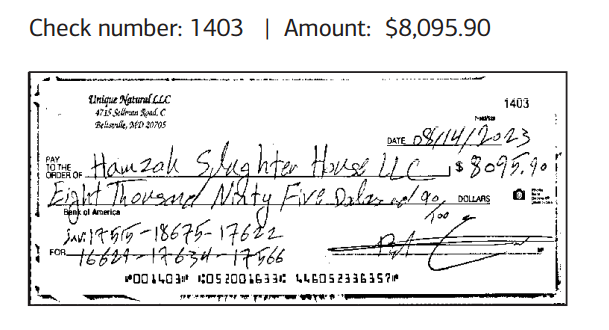 Check number: 1403 | Amount: $8,095.90
Unique Natural LLC
4715 Sellman Road, C
Beltsville, MD 20705
1403
DATE 08/14/2023
PAY TO THE ORDER OF Hamzah Slughter House LLC $ 8095.90
Eight Thousand Ninty Five Dolars and 90/100 DOLLARS
Bank of America
Inv: 17515-18675-17622
FOR 16629-17634-17566
⑈001403⑈ ⑆052001633⑆ 446052336357⑈